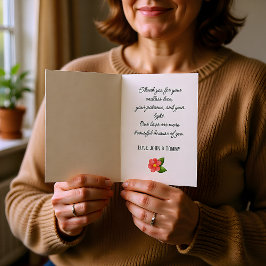 Thank you for your
endless love,
your patience, and your
light.
Our lives are more
beautiful because of you.